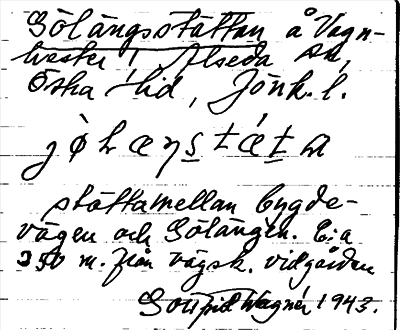 Sölängsstättan å Vagn-
hester 1, Alseda sn,
Östra Hd, Jönk. l.
stätta mellan bygde-
vägen och Sölängen. C:a
350 m. från vägsk. vid gården
Gottfrid Wagnér 1943.